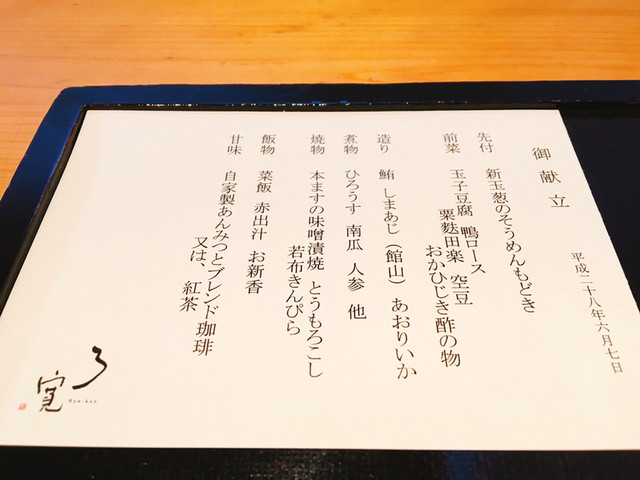 御献立
平成二十八年六月七日
先付 新玉葱のそうめんもどき
前菜 玉子豆腐 鴨ロース 空豆
粟麩田楽 おかひじき酢の物
造り 鮪 しまあじ(館山) あおりいか
煮物 ひろうす 南瓜 人参 他
焼物 本ますの味噌漬焼 とうもろこし
若布きんぴら
飯物 菜飯 赤出汁 お新香
甘味 自家製あんみつとブレンド珈琲
又は、紅茶
ろ
寛